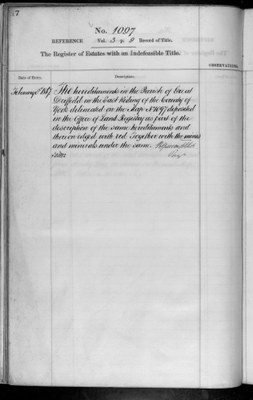 7
No. 1097
REFERENCE Vol. 3 p. 9 Record of Title.
The Register of Estates with an Indefeasible Title.
OBSERVATIONS.
Date of Entry. Description.
February 1867 The hereditaments in the Parish of Great
Driffield in the East Riding of the County of
York delineated on the Map No 1097 deposited
in the Office of Land Registry as part of the
description of the same hereditaments and
thereon edged with red Together with the mines
and minerals under the same.